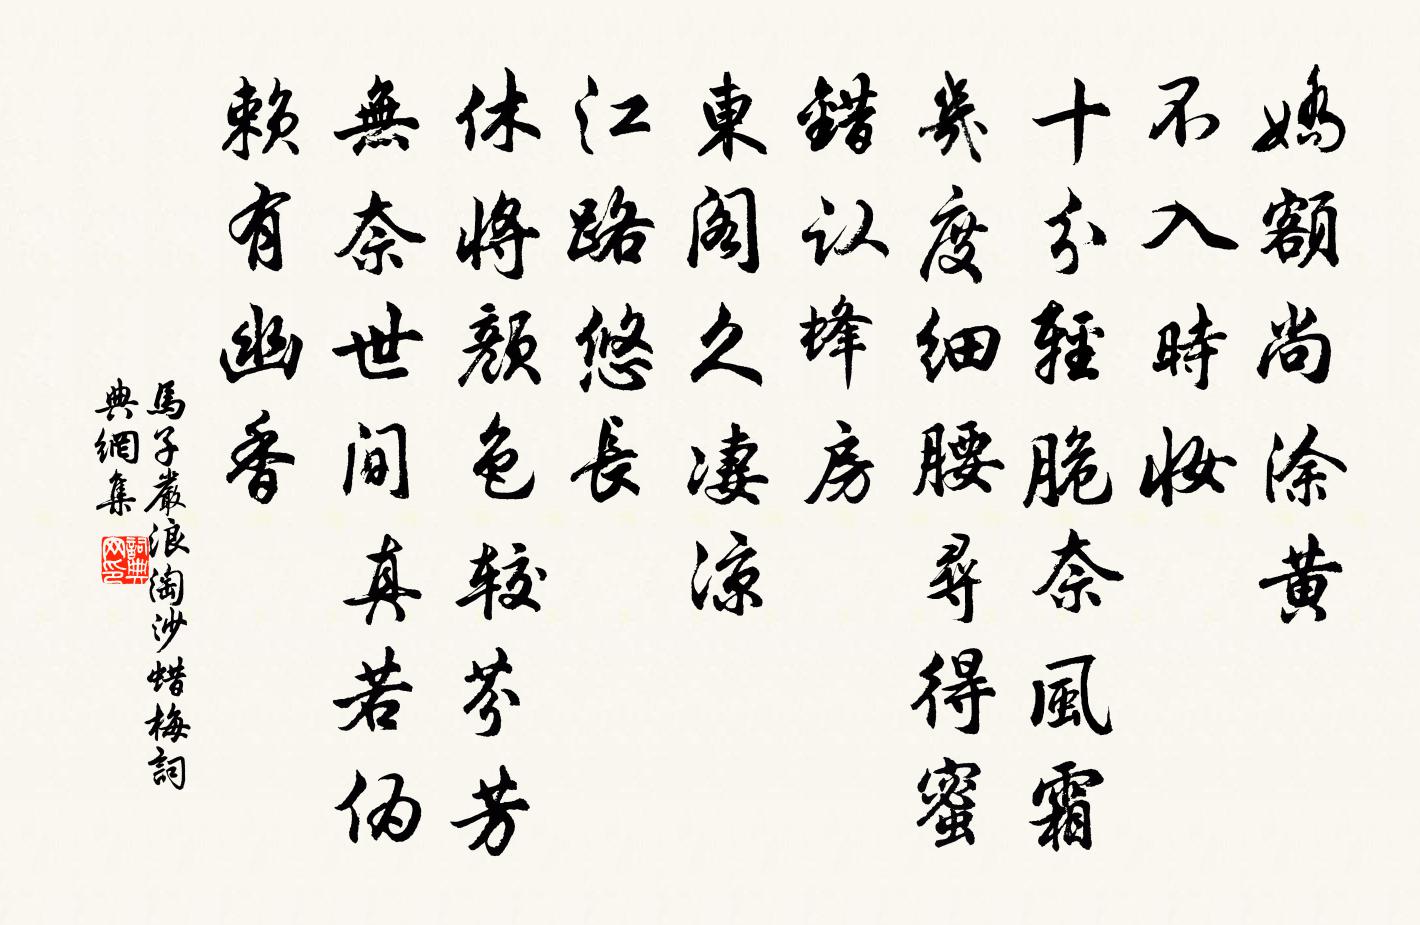 嬌額尚涂黄
不入時妝
十分輕脆奈風霜
幾度細腰尋得蜜
錯认蜂房
東閣久凄凉
江路悠長
休將顔色較芬芳
無奈世间真若伪
賴有幽香
馬子嚴浪淘沙蜡梅詞
典網集
詞典网印